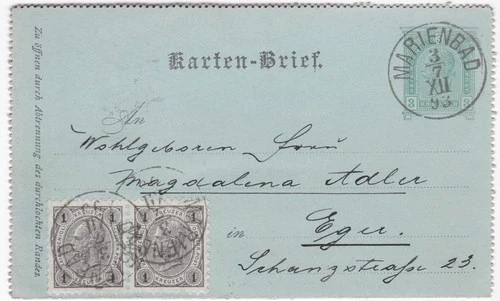 Karten-Brief.
MARIENBAD
3
7
XII
93
3 3
An
Wohlgeboren Frau
Magdalena Adler
in Eger.
Schanzstraße 23.
Zu öffnen durch Abtrennung des durchlochten Randes.
1 1
1 1
1 1
1 1
KREUZER KREUZER